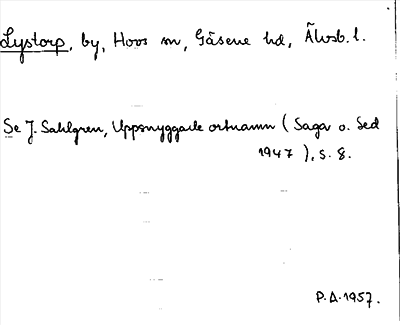 Lystorp, by, Hovs sn, Gäsene hd, Älvsb. l.
Se J. Sahlgren, Uppsnyggade ortnamn (Saga o. Sed
1947), s. 8.
P.A. 1957.